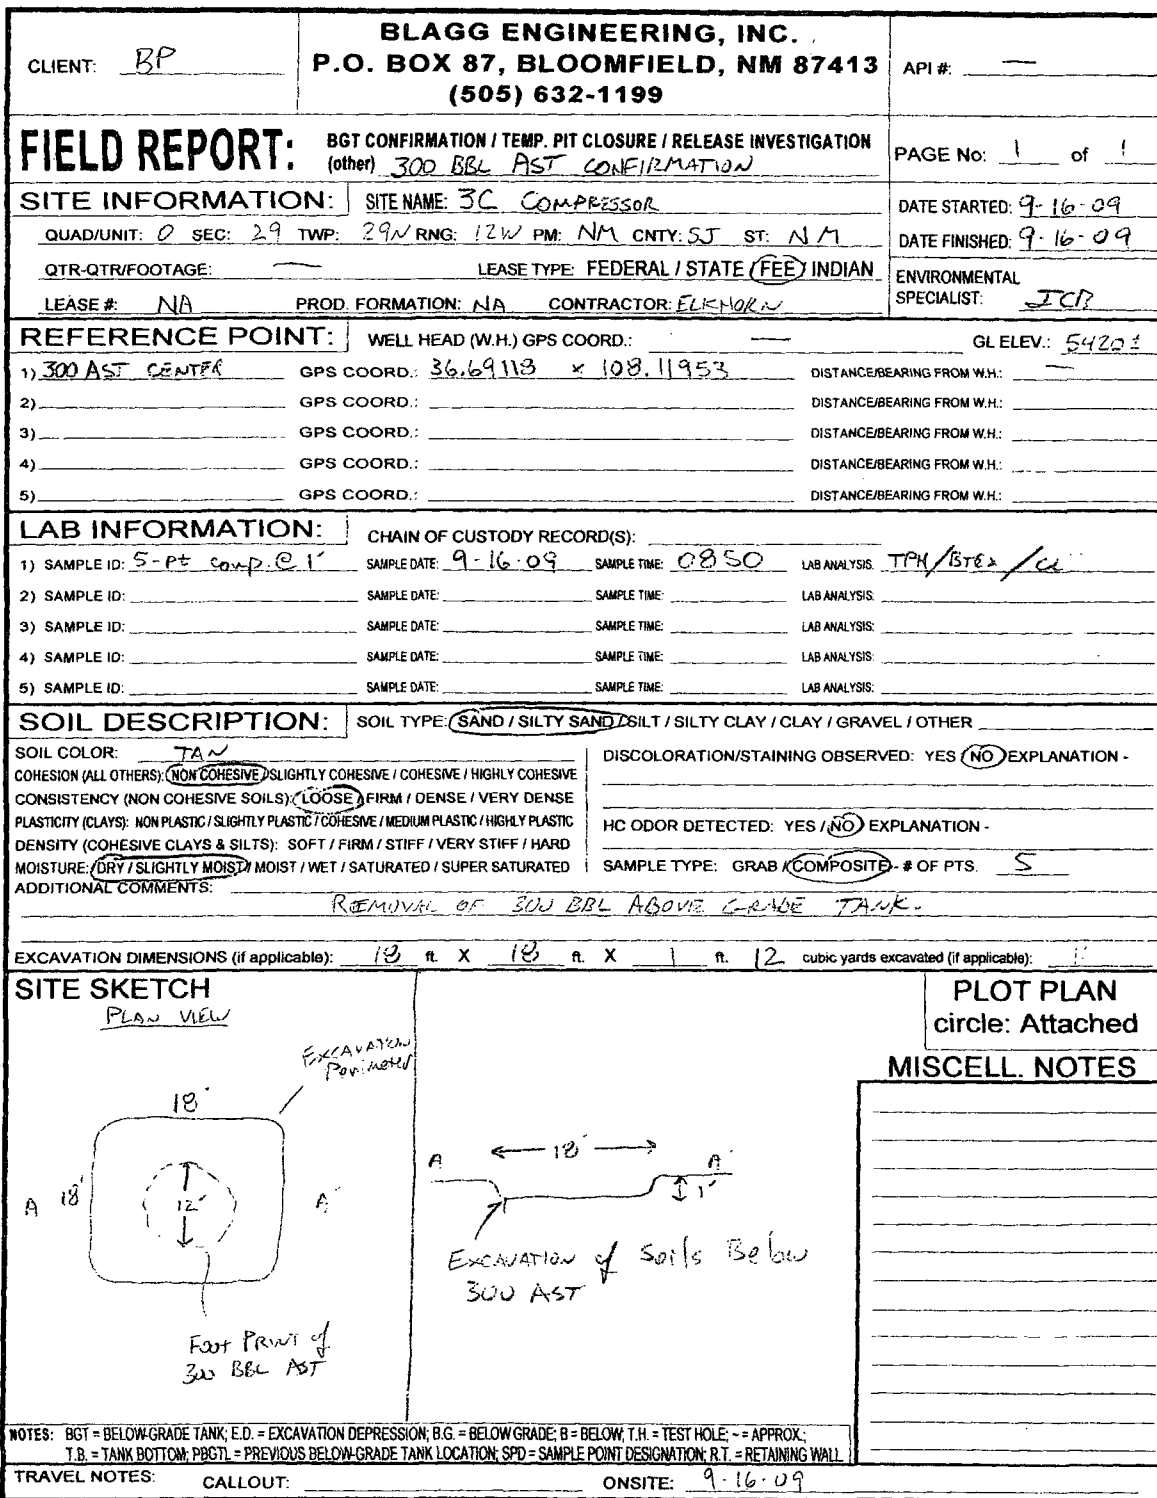 BLAGG ENGINEERING, INC.
CLIENT: BP P.O. BOX 87, BLOOMFIELD, NM 87413 API #: —
(505) 632-1199
FIELD REPORT: BGT CONFIRMATION / TEMP. PIT CLOSURE / RELEASE INVESTIGATION
(other) 300 BBL AST CONFIRMATION PAGE No: 1 of 1
SITE INFORMATION: SITE NAME: 3C COMPRESSOR DATE STARTED: 9-16-09
QUAD/UNIT: O SEC: 29 TWP: 29N RNG: 12W PM: NM CNTY: SJ ST: NM DATE FINISHED: 9-16-09
QTR-QTR/FOOTAGE: — LEASE TYPE: FEDERAL / STATE / FEE / INDIAN ENVIRONMENTAL
LEASE #: NA PROD. FORMATION: NA CONTRACTOR: ELKHORN SPECIALIST: JCB
REFERENCE POINT: WELL HEAD (W.H.) GPS COORD.: — GL ELEV.: 5420±
1) 300 AST CENTER GPS COORD.: 36.69118 x 108.11953 DISTANCE/BEARING FROM W.H.: —
2) GPS COORD.: DISTANCE/BEARING FROM W.H.:
3) GPS COORD.: DISTANCE/BEARING FROM W.H.:
4) GPS COORD.: DISTANCE/BEARING FROM W.H.:
5) GPS COORD.: DISTANCE/BEARING FROM W.H.:
LAB INFORMATION: CHAIN OF CUSTODY RECORD(S):
1) SAMPLE ID: 5-pt comp. @ 1' SAMPLE DATE: 9-16-09 SAMPLE TIME: 0850 LAB ANALYSIS: TPH/BTEX/CL
2) SAMPLE ID: SAMPLE DATE: SAMPLE TIME: LAB ANALYSIS:
3) SAMPLE ID: SAMPLE DATE: SAMPLE TIME: LAB ANALYSIS:
4) SAMPLE ID: SAMPLE DATE: SAMPLE TIME: LAB ANALYSIS:
5) SAMPLE ID: SAMPLE DATE: SAMPLE TIME: LAB ANALYSIS:
SOIL DESCRIPTION: SOIL TYPE: SAND / SILTY SAND / SILT / SILTY CLAY / CLAY / GRAVEL / OTHER
SOIL COLOR: TAN DISCOLORATION/STAINING OBSERVED: YES / NO EXPLANATION -
COHESION (ALL OTHERS): NON COHESIVE / SLIGHTLY COHESIVE / COHESIVE / HIGHLY COHESIVE
CONSISTENCY (NON COHESIVE SOILS): LOOSE / FIRM / DENSE / VERY DENSE
PLASTICITY (CLAYS): NON PLASTIC / SLIGHTLY PLASTIC / COHESIVE / MEDIUM PLASTIC / HIGHLY PLASTIC HC ODOR DETECTED: YES / NO EXPLANATION -
DENSITY (COHESIVE CLAYS & SILTS): SOFT / FIRM / STIFF / VERY STIFF / HARD
MOISTURE: DRY / SLIGHTLY MOIST / MOIST / WET / SATURATED / SUPER SATURATED SAMPLE TYPE: GRAB / COMPOSITE - # OF PTS. 5
ADDITIONAL COMMENTS:
REMOVAL OF 300 BBL ABOVE GRADE TANK.
EXCAVATION DIMENSIONS (if applicable): 18 ft. X 18 ft. X 1 ft. 12 cubic yards excavated (if applicable):
SITE SKETCH
PLAN VIEW
EXCAVATION
Perimeter
18'
A 18' 12' A'
Foot PRINT of
300 BBL AST
A 18' A'
1'
EXCAVATION of Soils Below
300 AST
PLOT PLAN
circle: Attached
MISCELL. NOTES
NOTES: BGT = BELOW-GRADE TANK; E.D. = EXCAVATION DEPRESSION; B.G. = BELOW GRADE; B = BELOW; T.H. = TEST HOLE; ~ = APPROX.;
T.B. = TANK BOTTOM; PBGTL = PREVIOUS BELOW-GRADE TANK LOCATION; SPD = SAMPLE POINT DESIGNATION; R.T. = RETAINING WALL
TRAVEL NOTES: CALLOUT: ONSITE: 9-16-09